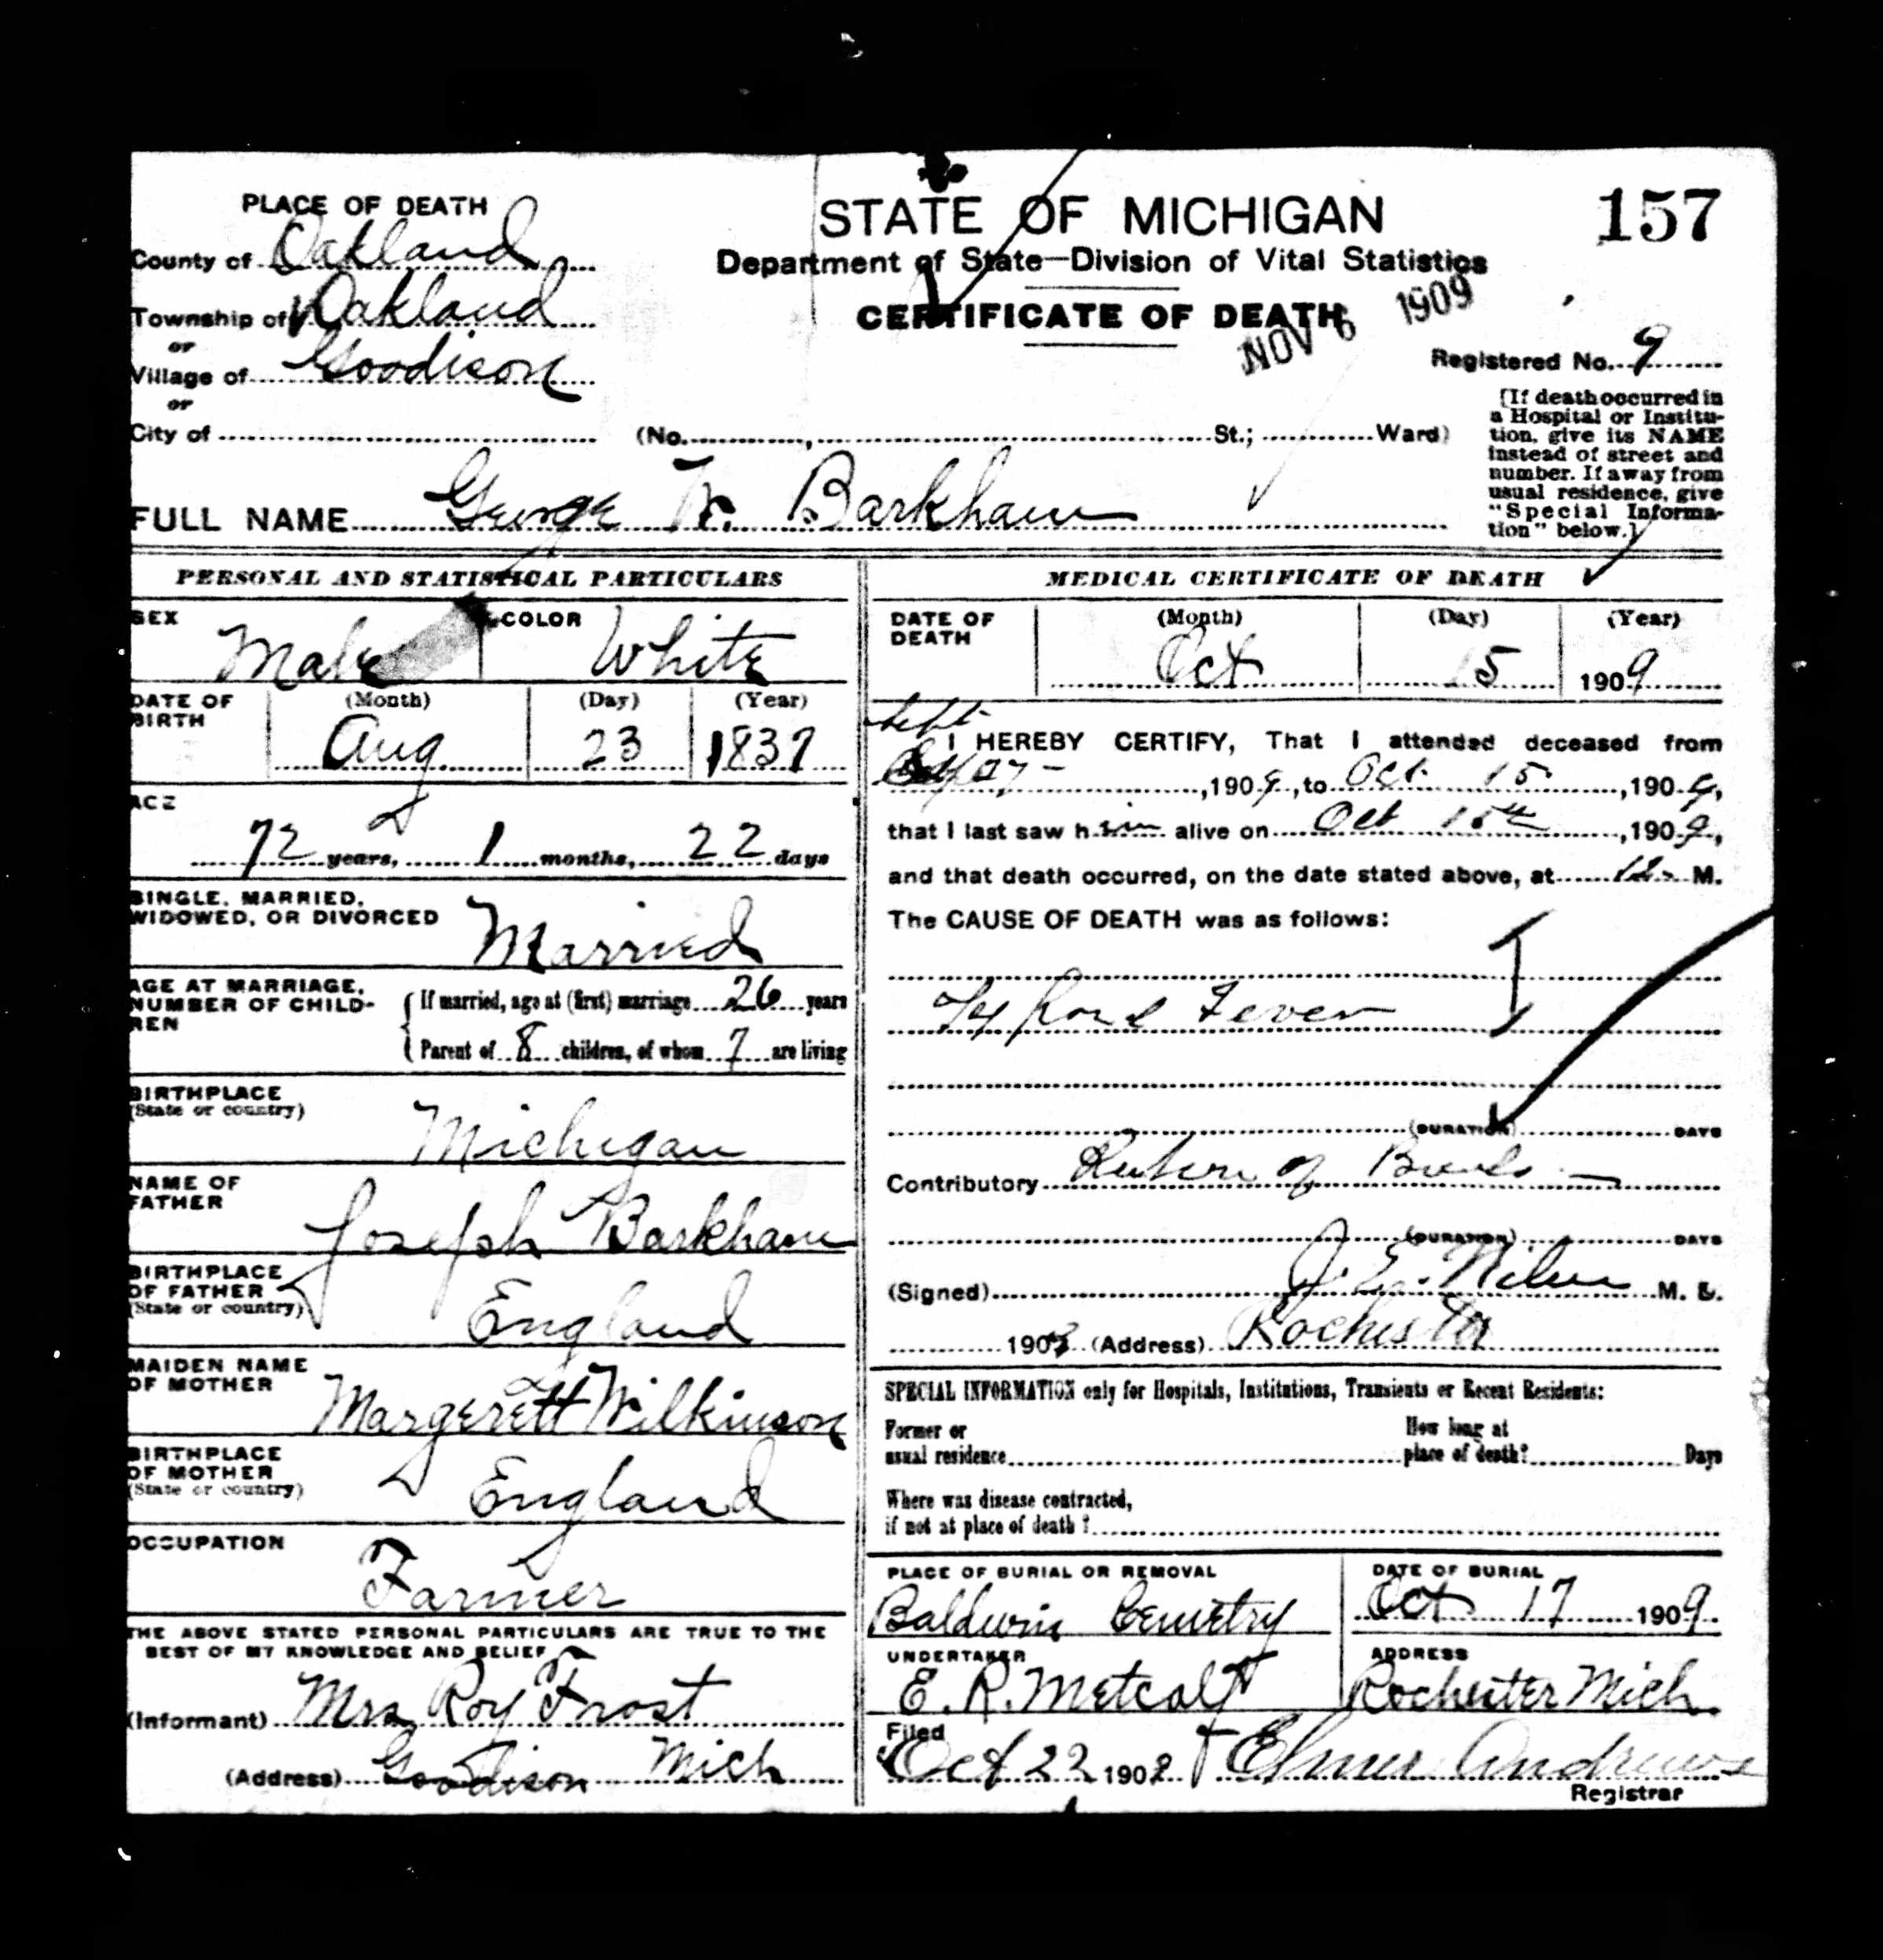 PLACE OF DEATH
County of Oakland
Township of Oakland
or
Village of Goodison
or
City of
STATE OF MICHIGAN
Department of State—Division of Vital Statistics
CERTIFICATE OF DEATH
NOV 6 1909
157
Registered No. 9
(No. , St.; Ward)
[If death occurred in
a Hospital or Institu-
tion, give its NAME
instead of street and
number. If away from
usual residence, give
"Special Informa-
tion" below.]
FULL NAME George W. Barkham
PERSONAL AND STATISTICAL PARTICULARS
SEX Male COLOR White
DATE OF BIRTH (Month) (Day) (Year)
Aug 23 1837
AGE
72 years, 1 months, 22 days
SINGLE, MARRIED,
WIDOWED, OR DIVORCED Married
AGE AT MARRIAGE,
NUMBER OF CHILD-
REN
If married, age at (first) marriage 26 years
Parent of 8 children, of whom 7 are living
BIRTHPLACE
(State or country)
Michigan
NAME OF
FATHER
Joseph Barkham
BIRTHPLACE
OF FATHER
(State or country)
England
MAIDEN NAME
OF MOTHER
Margerett Wilkinson
BIRTHPLACE
OF MOTHER
(State or country)
England
OCCUPATION
Farmer
THE ABOVE STATED PERSONAL PARTICULARS ARE TRUE TO THE
BEST OF MY KNOWLEDGE AND BELIEF
(Informant) Mrs Roy Frost
(Address) Goodison Mich
MEDICAL CERTIFICATE OF DEATH
DATE OF DEATH (Month) (Day) (Year)
Oct 15 1909
Sept
I HEREBY CERTIFY, That I attended deceased from
27 - , 1909, to Oct. 15 , 1909,
that I last saw him alive on Oct 15th , 1909,
and that death occurred, on the date stated above, at 12 M.
The CAUSE OF DEATH was as follows:
Typhoid Fever
(DURATION) DAYS
Contributory of
(DURATION) DAYS
(Signed) J. E. Wilson M. D.
190 (Address) Rochester
SPECIAL INFORMATION only for Hospitals, Institutions, Transients or Recent Residents:
Former or
usual residence
How long at
place of death? Days
Where was disease contracted,
if not at place of death?
PLACE OF BURIAL OR REMOVAL
Baldwin Cemetry
DATE OF BURIAL
Oct 17 1909
UNDERTAKER
E. R. Metcalf
ADDRESS
Rochester Mich.
Filed
Oct 22 1909 Elmer Andrews
Registrar